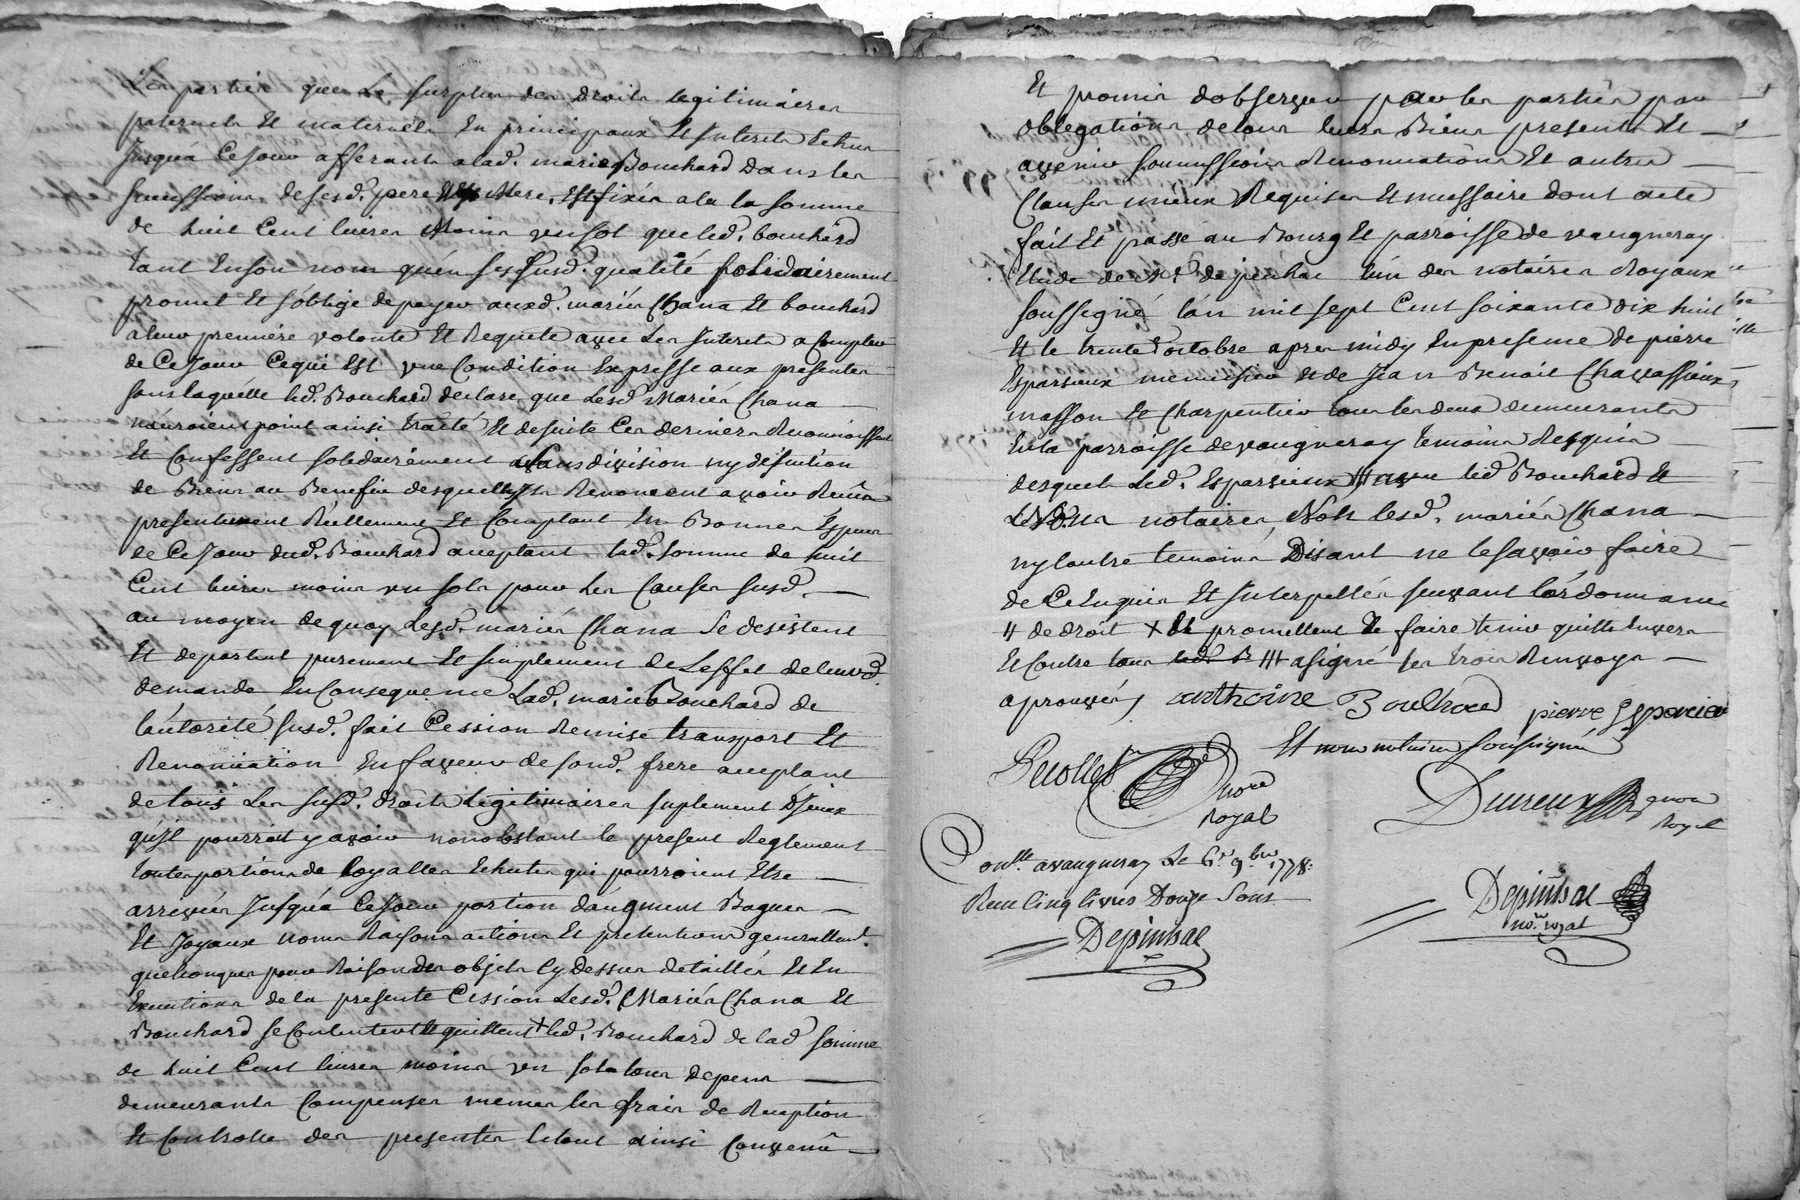 Les parties que Le surplus des droits legitimaires
paternels Et maternels En principaux Et Interets Echus
Jusqu'a Ce Jour afferants a lad. marie Bouchard Dans les
successions de sesd. pere Et Mere, Est fixés a la somme
de huit Cent livres Moins un sol que led. bouchard
tant En son nom qu'en sesusd. qualité solidairement
promet Et s'oblige de payer auxd. mariés Chana Et bouchard
a leur première volonté Et Requete avec Les Interets a Compter
de Ce Jour Ce qui Est une Condition Expresse aux presentes
sans laquelle led. Bouchard declare que Lesd. Mariés Chana
n'auroient point ainsi traité Et de suite Ces derniers Reconnoissent
Et Confessent solidairement sans division ny discution
de Biens au Benefice desquels ils Renoncent avoir Reçu
presentement Réellement Et Comptant En Bonnes Especes
de Ce Jour dud. Bouchard aceptant lad. somme de huit
Cent livres moins un sols pour Les Causes susd.
au moyen de quoy Lesd. mariés Chana se desistent
Et departent purement Et simplement de L'effet de leurd.
demande En Consequence Lad. marie Bouchard de
l'autorité susd. fait Cession Remise transport Et
Renonciation En faveur de sond. frere aceptant
de tous Les susd. droits Legitimaires suplement d'Iceux
qu'il pourroit y avoir nonobstant le present Reglement
toutes portions de loyalles Echutes qui pourroient Etre
arrivées Jusqu'a Ce Jour portion d'augment Bagues
Et Joyaux noms Raisons actions Et pretentions generallemt.
quelconques pour Raison des objets Cy Dessus detaillés Et En
Execution de la presente Cession Lesd. Mariés Chana Et
Bouchard se Contentent Et quittent + led. Bouchard de lad. somme
de huit Cent livres moins un sols tous depens
demeurants Compensés memes les frais de Reception
Et Controlle des presentes le tout ainsi Convenu
Et promis d'observer par les parties par
obligations de tous leurs Biens presents Et
avenir soumissions Renonciations Et autres
Clauses mieux Requises Et necessaire dont acte
fait Et passé au Bourg Et parroisse de vaugneray
Etude de Me. depinhac l'un des notaires Royaux
soussigné l'an mil sept Cent soixante dix huit
Et le trente octobre apres midy En presence de pierre
Esparvieux menuisier Et de Jean Benoit Chavassieux
masson Et Charpentier tous les deux demeurants
En la parroisse de vaugneray temoins Requis
desquels Led. Esparvieux H avec led. Bouchard Et
Lesd. notaires, Non lesd. mariés Chana
ny l'autre temoins Disant ne le sçavoir faire
de Ce Enquis Et Interpellés suivant l'ordonnance
H de droit + Et promettent le faire tenir quitte Envers
Et Contre tous led. B HH a signé les trois Renvoys
aprouvés anthoine Bouchard pierre Esparvier
Et nous notaires soussignés
Decollet
nore
Royal
Durieux
nore
Royal
Contlle. a vaugneray Le 6e. 9bre. 1778.
Reçu Cinq livres Douze Sous
Depinhac
Depinhac
nre. royal